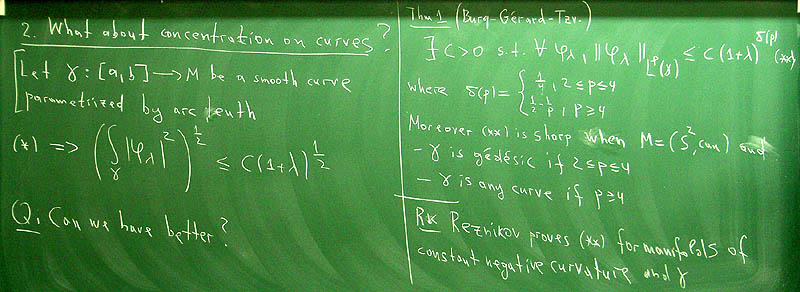 2. What about concentration on curves?
Let γ: [a,b] → M be a smooth curve
parametrized by arc lenth
(*) => (∫_γ |φ_λ|²)^{1/2} ≤ C(1+λ)^{1/2}
Q. Can we have better?
Thm 1 (Burq-Gérard-Tzv.)
∃ C>0 s.t. ∀ φ_λ, ||φ_λ||_{L^p(γ)} ≤ C(1+λ)^{δ(p)} (**)
where δ(p) = { 1/4, 2≤p≤4
1/2 - 1/p, p≥4
Moreover (**) is sharp when M=(S², can) and
- γ is gédésic if 2≤p≤4
- γ is any curve if p≥4
Rk Reznikov proves (**) for manifolds of
constant negative curvature and γ